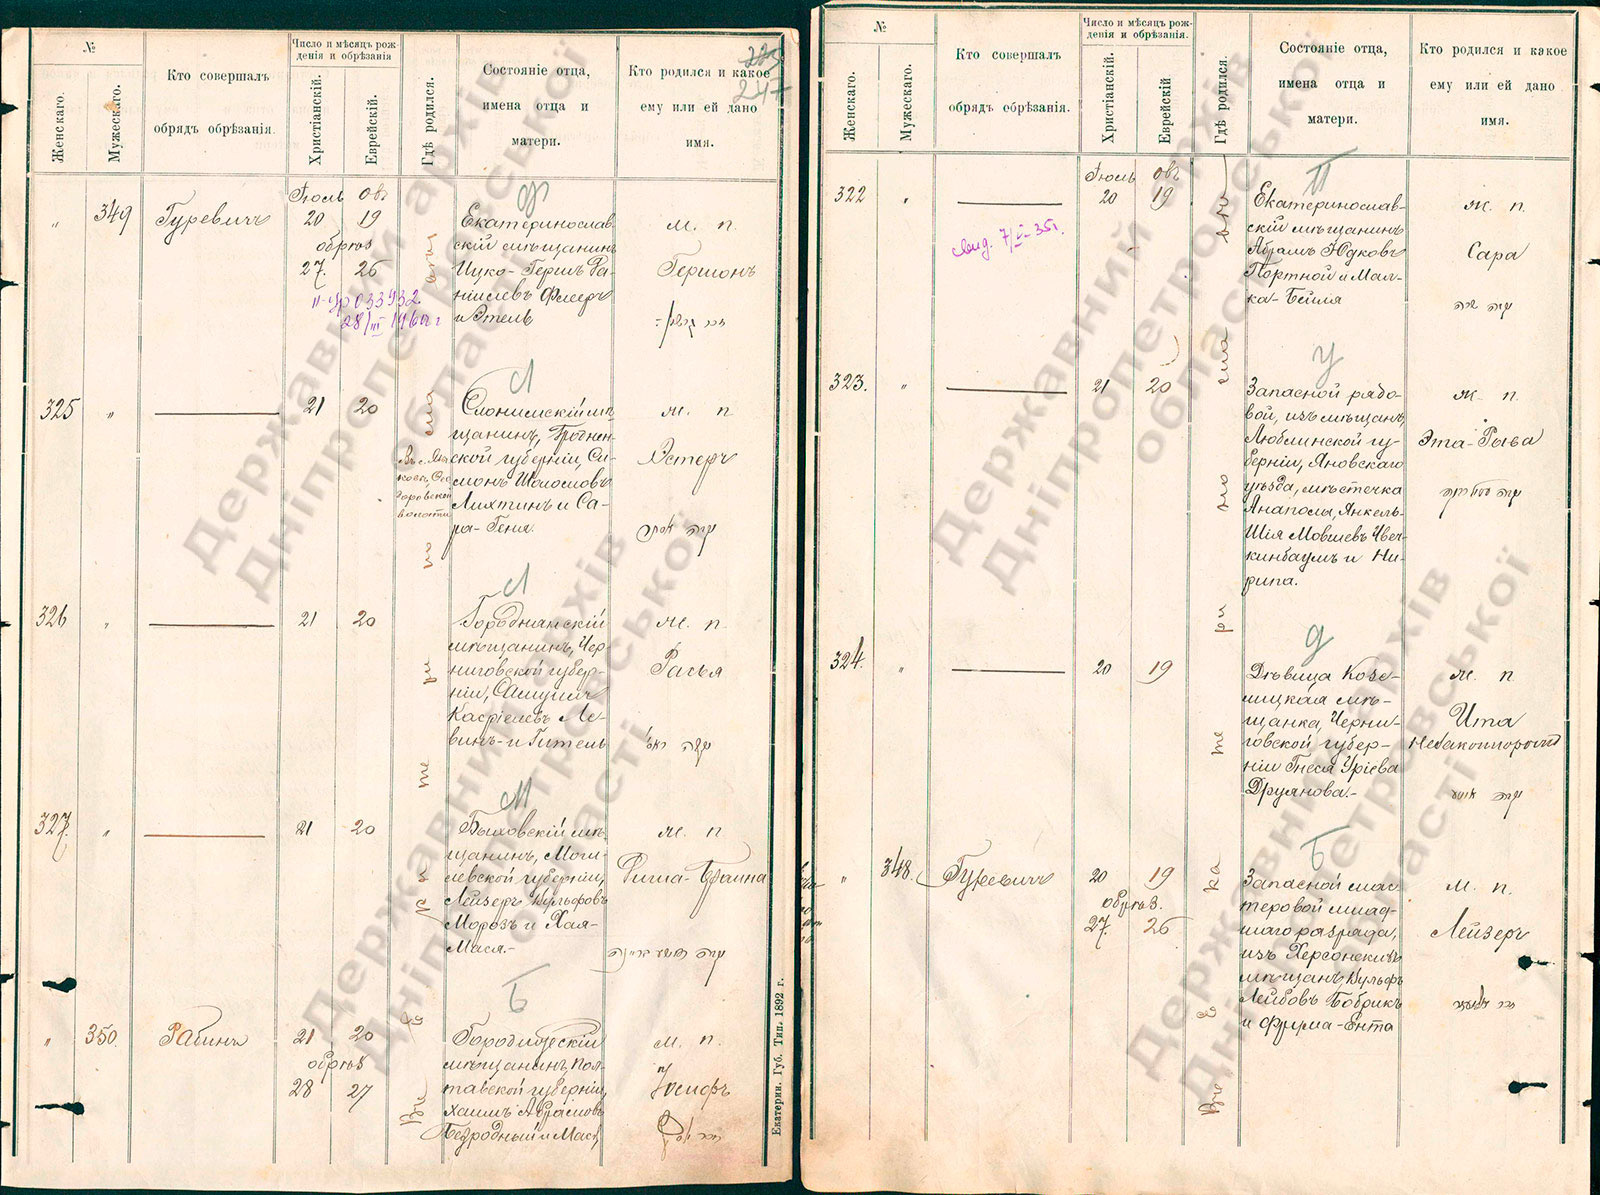 №
Женскаго.
Мужескаго.
Кто совершалъ
обрядъ обрѣзанія.
Число и мѣсяцъ рож-
денія и обрѣзанія
Христіанскій.
Еврейскій.
Гдѣ родился.
Состояніе отца,
имена отца и
матери.
Кто родился и какое
ему или ей дано
имя.
247
"
349
Гуревичъ
Іюль Овъ
20 19
обрѣз
27. 26
28/III 1960 г
ф
Екатеринослав
скій мѣщанинъ
Ицко-Гершъ Фа-
и Этель
м. п.
Гершонъ
325
"
21 20
Л
Слонимскій мѣ
щанинъ, Гроднен-
ской губерніи, Си-
монъ Шоломовъ
Лихтинъ и Са-
ра-Геня.
ж. п
Эстеръ
326
"
21 20
Л
Городнянскій
мѣщанинъ, Чер-
ниговской губер-
ніи, Самуилъ
Касріелевъ Ле-
винъ и Гитель
ж. п.
Расья
327.
"
21 20
М
Быховскій мѣ
щанинъ, Моги-
левской губерніи,
Лейзеръ Вульфовъ
Морозъ и Хая-
Мася.-
ж. п
-Браина
"
350.
Рабинъ
21 20
обрѣз
28 27
Б
мѣщанинъ, Пол-
тавской губерніи,
Хаимъ Абрамовъ
Безродный и Мася,
м. п.
Іосифъ
Екатерин. Губ. Тип. 1892 г.
№
Женскаго.
Мужескаго.
Кто совершалъ
обрядъ обрѣзанія.
Число и мѣсяцъ рож-
денія и обрѣзанія.
Христіанскій.
Еврейскій
Гдѣ родился.
Состояніе отца,
имена отца и
матери.
Кто родился и какое
ему или ей дано
имя.
322
"
Іюль Овъ
20 19
П
Екатеринослав-
скій мѣщанинъ
Абрамъ Юдковъ
Портной и Мал-
ка-Бейля
ж. п.
Сара
שרה
323.
"
21 20
Запасной рядо-
вой, изъ мѣщанъ,
Люблинской гу-
берніи, Яновскаго
уѣзда, мѣстечка
Анаполя, Янкель-
Шія Мовшевъ
ж. п.
Эта-Рыва
324.
"
20 19
Д
Дѣвица Козе-
лицкая мѣ-
щанка, Черни-
говской губер-
ніи Гнеся Уріева
Друянова.-
ж. п
Ита
"
348.
Гуревичъ
20 19
обрѣз.
27. 26
Б
Запасной мас
теровой млад-
шаго разряда,
изъ Херсонскихъ
мѣщанъ, Вульфъ
Лейбовъ Бобрикъ
и Фрума-Ента
м. п.
Лейзеръ
Державний архів
Дніпропетровської
області
Державний архів
Дніпропетровської
області
Державний архів
Дніпропетровської
області
Державний архів
Дніпропетровської
області